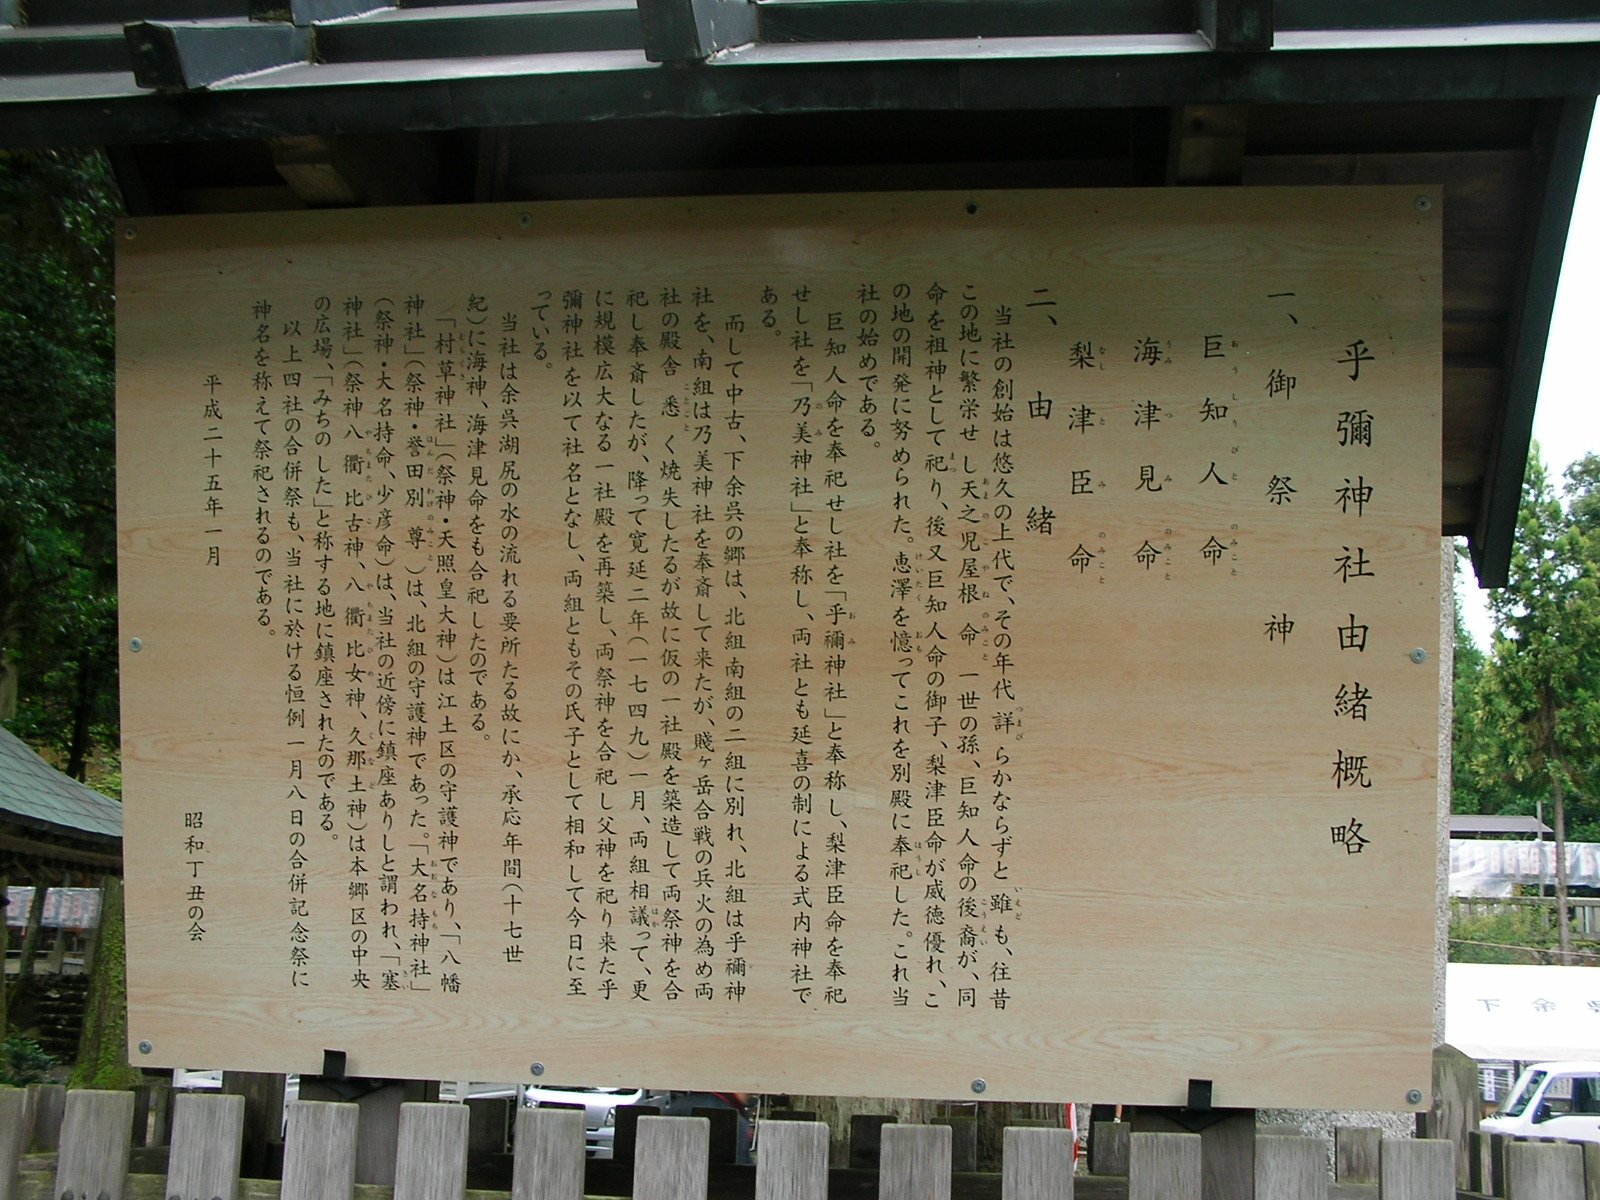 乎彌神社由緒概略
一、御祭神
巨知人命
海津見命
梨津臣命
二、由緒
当社の創始は悠久の上代で、その年代詳らかならずと雖も、往昔
この地に繁栄せし天之児屋根命一世の孫、巨知人命の後裔が、同
命を祖神として祀り、後又巨知人命の御子、梨津臣命が威徳優れ、こ
の地の開発に努められた。恵澤を憶ってこれを別殿に奉祀した。これ当
社の始めである。
巨知人命を奉祀せし社を「乎彌神社」と奉称し、梨津臣命を奉祀
せし社を「乃美神社」と奉称し、両社とも延喜の制による式内神社で
ある。
而して中古、下余呉の郷は、北組南組の二組に別れ、北組は乎彌神
社を、南組は乃美神社を奉斎して来たが、賤ヶ岳合戦の兵火の為め両
社の殿舎悉く焼失したるが故に仮の一社殿を築造して両祭神を合
祀し奉斎したが、降って寛延二年(一七四九)一月、両組相議って、更
に規模広大なる一社殿を再築し、両祭神を合祀し父神を祀り来た乎
彌神社を以て社名となし、両組ともその氏子として相和して今日に至
っている。
当社は余呉湖尻の水の流れる要所たる故にか、承応年間(十七世
紀)に海神、海津見命をも合祀したのである。
「村草神社」(祭神・天照皇大神)は江土区の守護神であり、「八幡
神社」(祭神・誉田別尊)は、北組の守護神であった。「大名持神社」
(祭神・大名持命、少彦命)は、当社の近傍に鎮座ありしと謂われ、「塞
神社」(祭神八衢比古神、八衢比女神、久那土神)は本郷区の中央
の広場、「みちのした」と称する地に鎮座されたのである。
以上四社の合併祭も、当社に於ける恒例一月八日の合併記念祭に
神名を称えて祭祀されるのである。
平成二十五年一月
昭和丁丑の会
下余